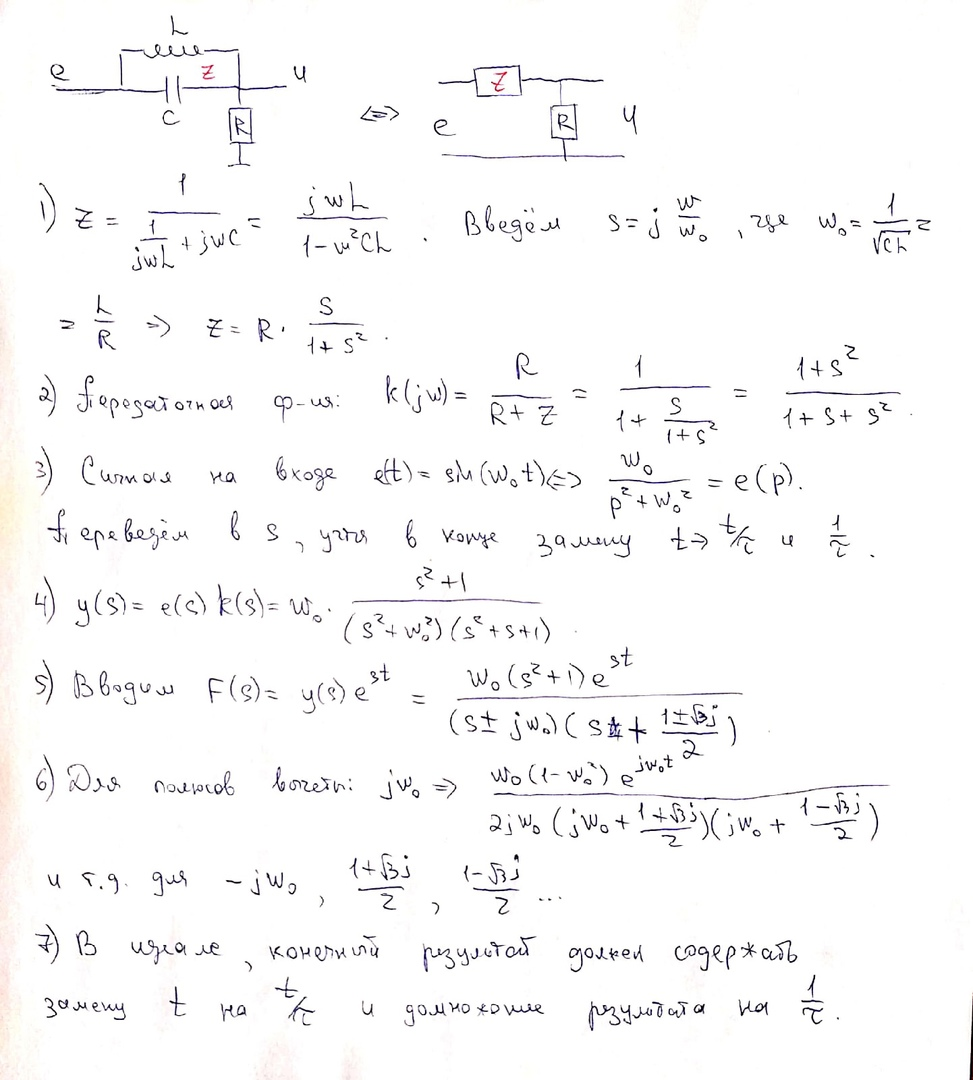 L
e Z u
C
R
<=>
Z
e R u
1) Z = 1/(1/(jwL) + jwC) = jwL/(1-w²CL). Введём s = j w/w₀, где w₀ = 1/√(CL) =
= L/R => Z = R · s/(1+s²).
2) Передаточная ф-ия: k(jw) = R/(R+Z) = 1/(1 + s/(1+s²)) = (1+s²)/(1+s+s²).
3) Сигнал на входе e(t) = sin(w₀t) <=> w₀/(p²+w₀²) = e(p).
Переведём в s, учтя в конце замену t → t/τ и 1/τ.
4) y(s) = e(s) k(s) = w₀ · (s²+1)/((s²+w₀²)(s²+s+1)).
5) Вводим F(s) = y(s) e^{st} = w₀(s²+1)e^{st}/((s ± jw₀)(s + (1±√3j)/2))
6) Для полюсов вычеты: jw₀ => w₀(1-w₀²)e^{jw₀t}/(2jw₀(jw₀ + (1+√3j)/2)(jw₀ + (1-√3j)/2))
и т.д. для -jw₀, (1+√3j)/2, (1-√3j)/2 ...
7) В идеале, конечный результат должен содержать
замену t на t/τ и домножение результата на 1/τ.